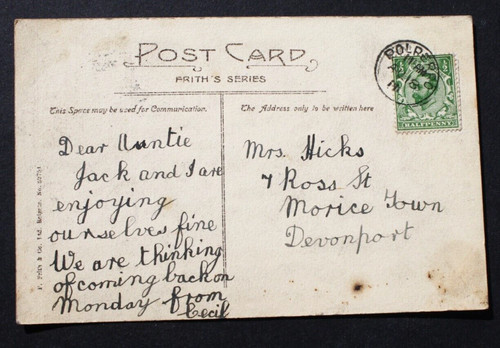 POST CARD
FRITH'S SERIES
This Space may be used for Communication.
The Address only to be written here
Dear Auntie
Jack and I are
enjoying
ourselves fine
We are thinking
of coming back on
Monday from
Cecil
Mrs. Hicks
7 Ross St
Morice Town
Devonport
HALFPENNY
F. Frith & Co. Ltd. Reigate. No.